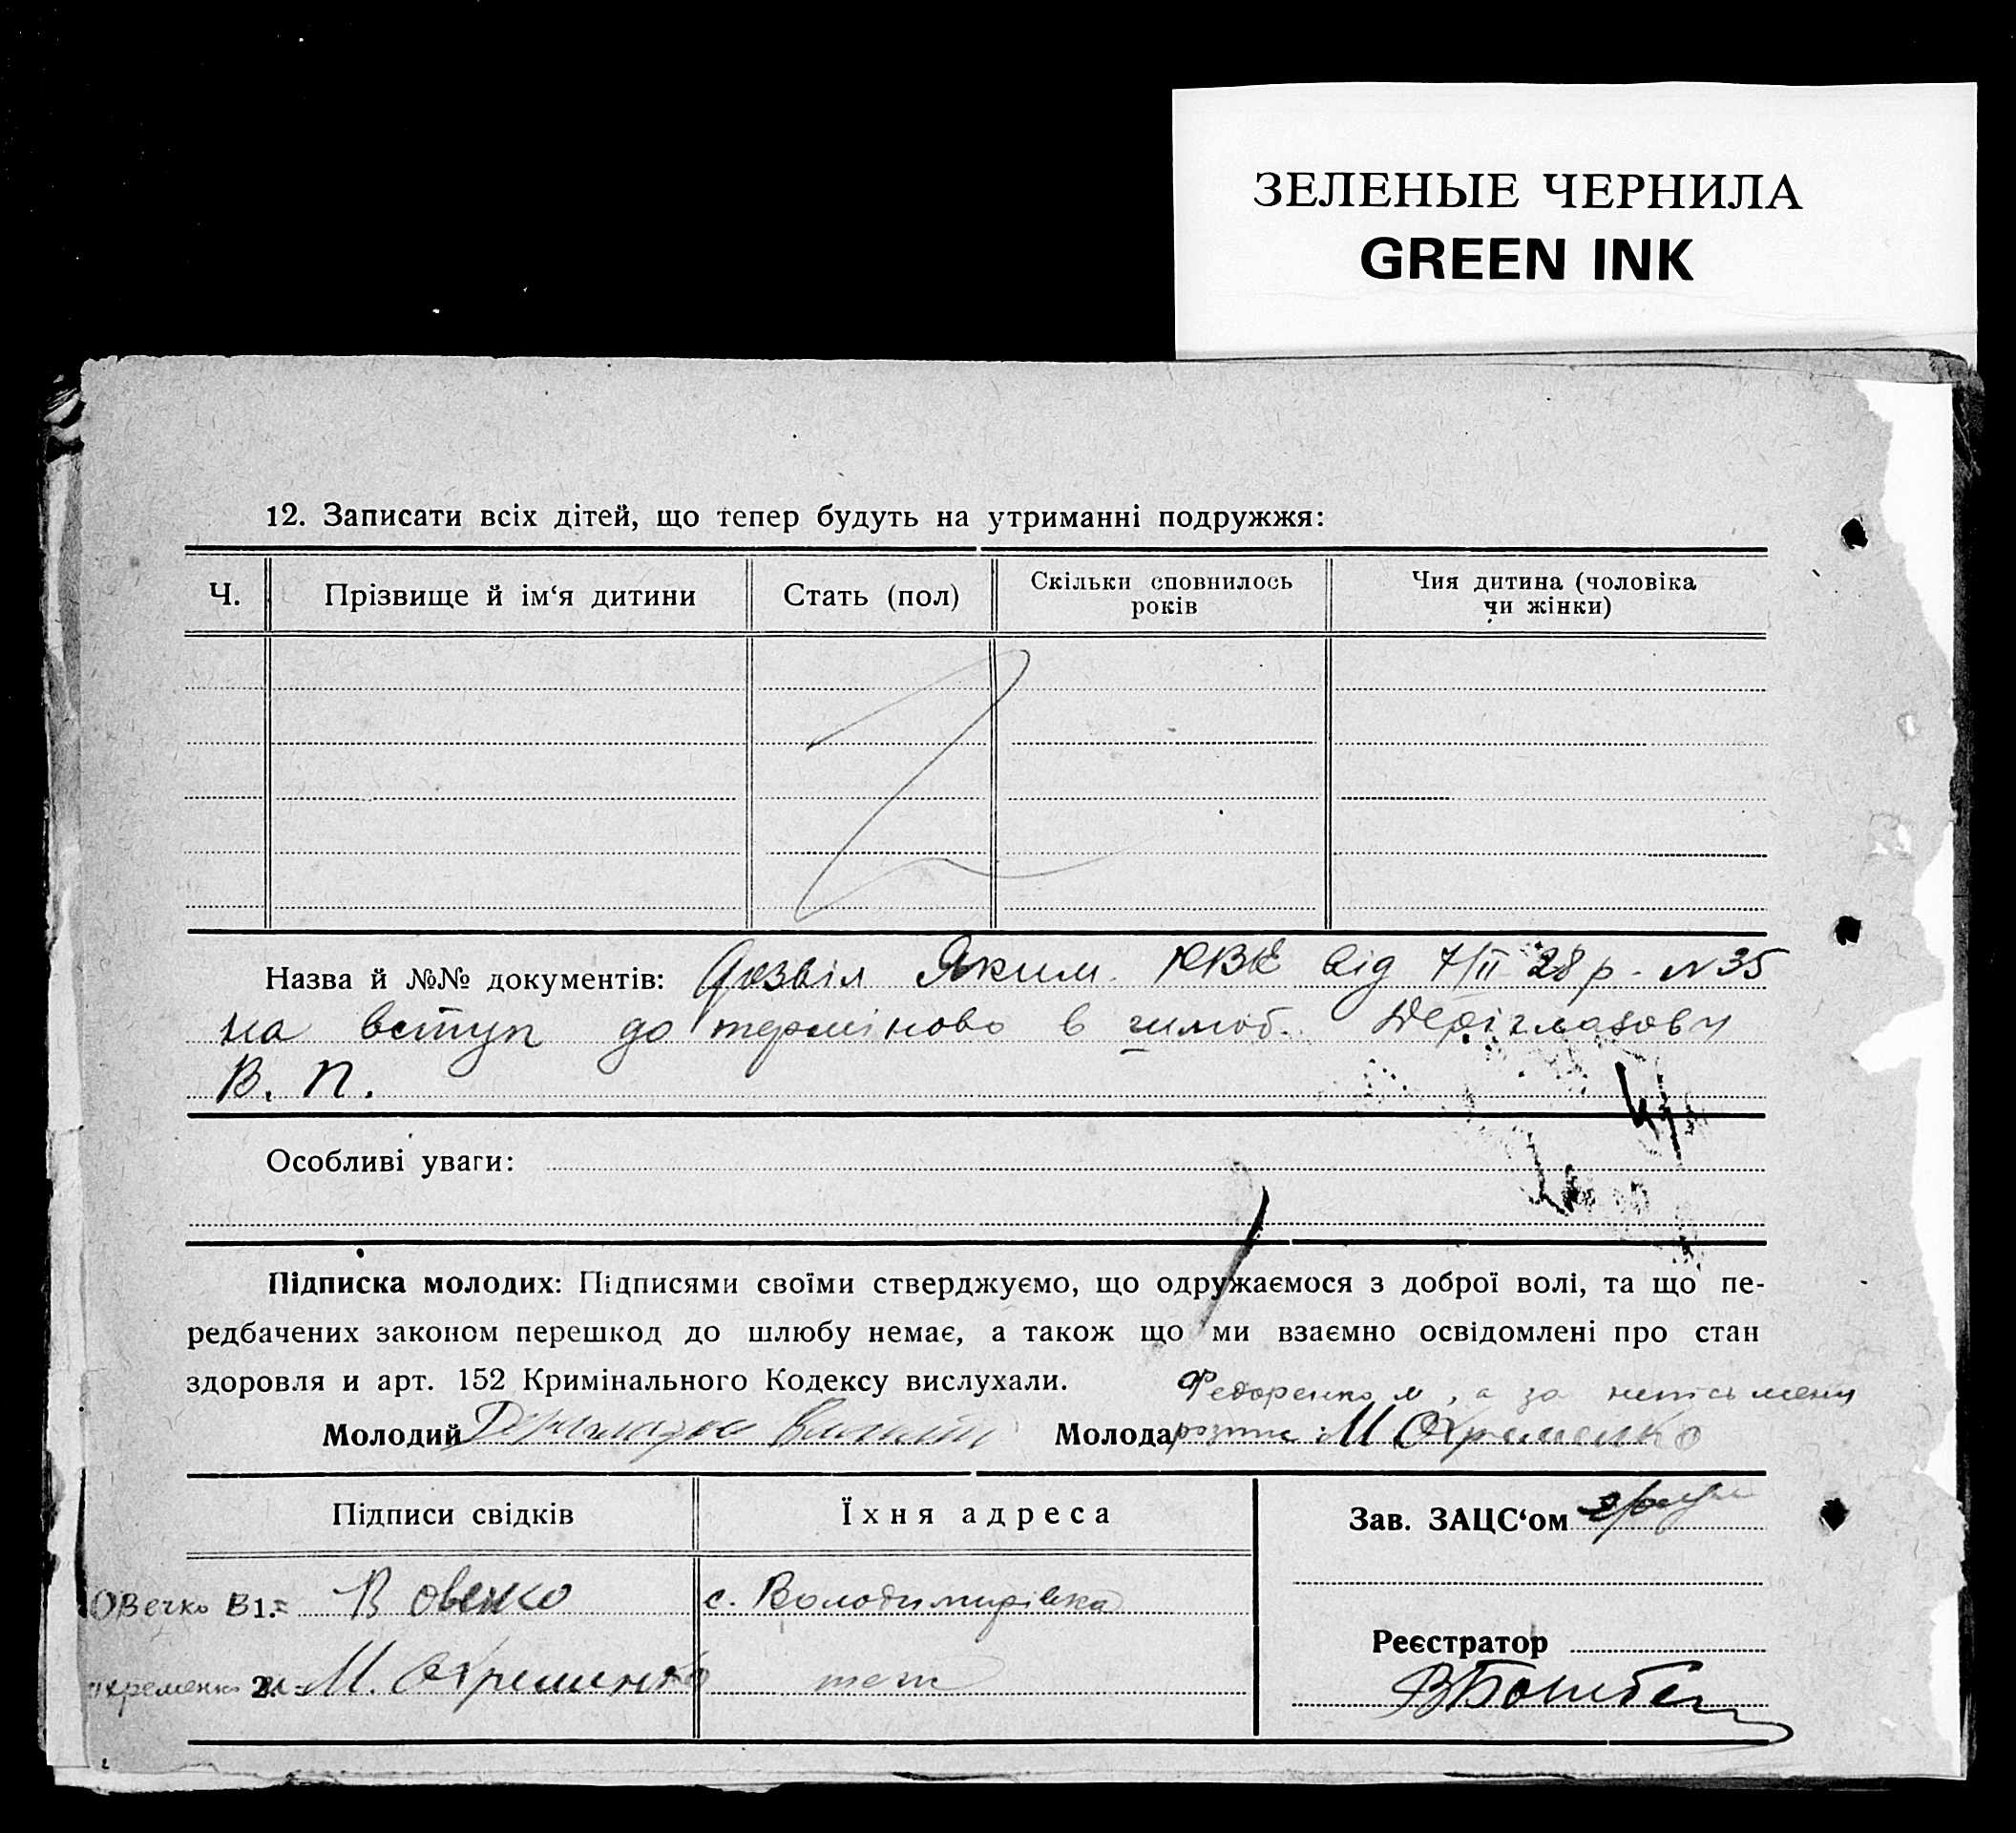 ЗЕЛЕНЫЕ ЧЕРНИЛА
GREEN INK
12. Записати всіх дітей, що тепер будуть на утриманні подружжя:
Ч. Прізвище й ім‘я дитини Стать (пол) Скільки сповнилось років Чия дитина (чоловіка чи жінки)
Назва й №№ документів: Дозвіл Яким. РВК від 7/II 28 р. № 35
на вступ до терміново в шлюб. Дериглазову
В. П.
Особливі уваги:
Підписка молодих: Підписями своїми стверджуємо, що одружаємося з доброї волі, та що пе-
редбачених законом перешкод до шлюбу немає, а також що ми взаємно освідомлені про стан
здоровля и арт. 152 Кримінального Кодексу вислухали.
Федоренко М, а за неписьмену
Молодий Молода розпис М Охременко
Підписи свідків Їхня адреса Зав. ЗАЦС‘ом
Овечко В 1. В Овечко с. Володимирівка
Реєстратор
Охременко 2. М. Охременко теж